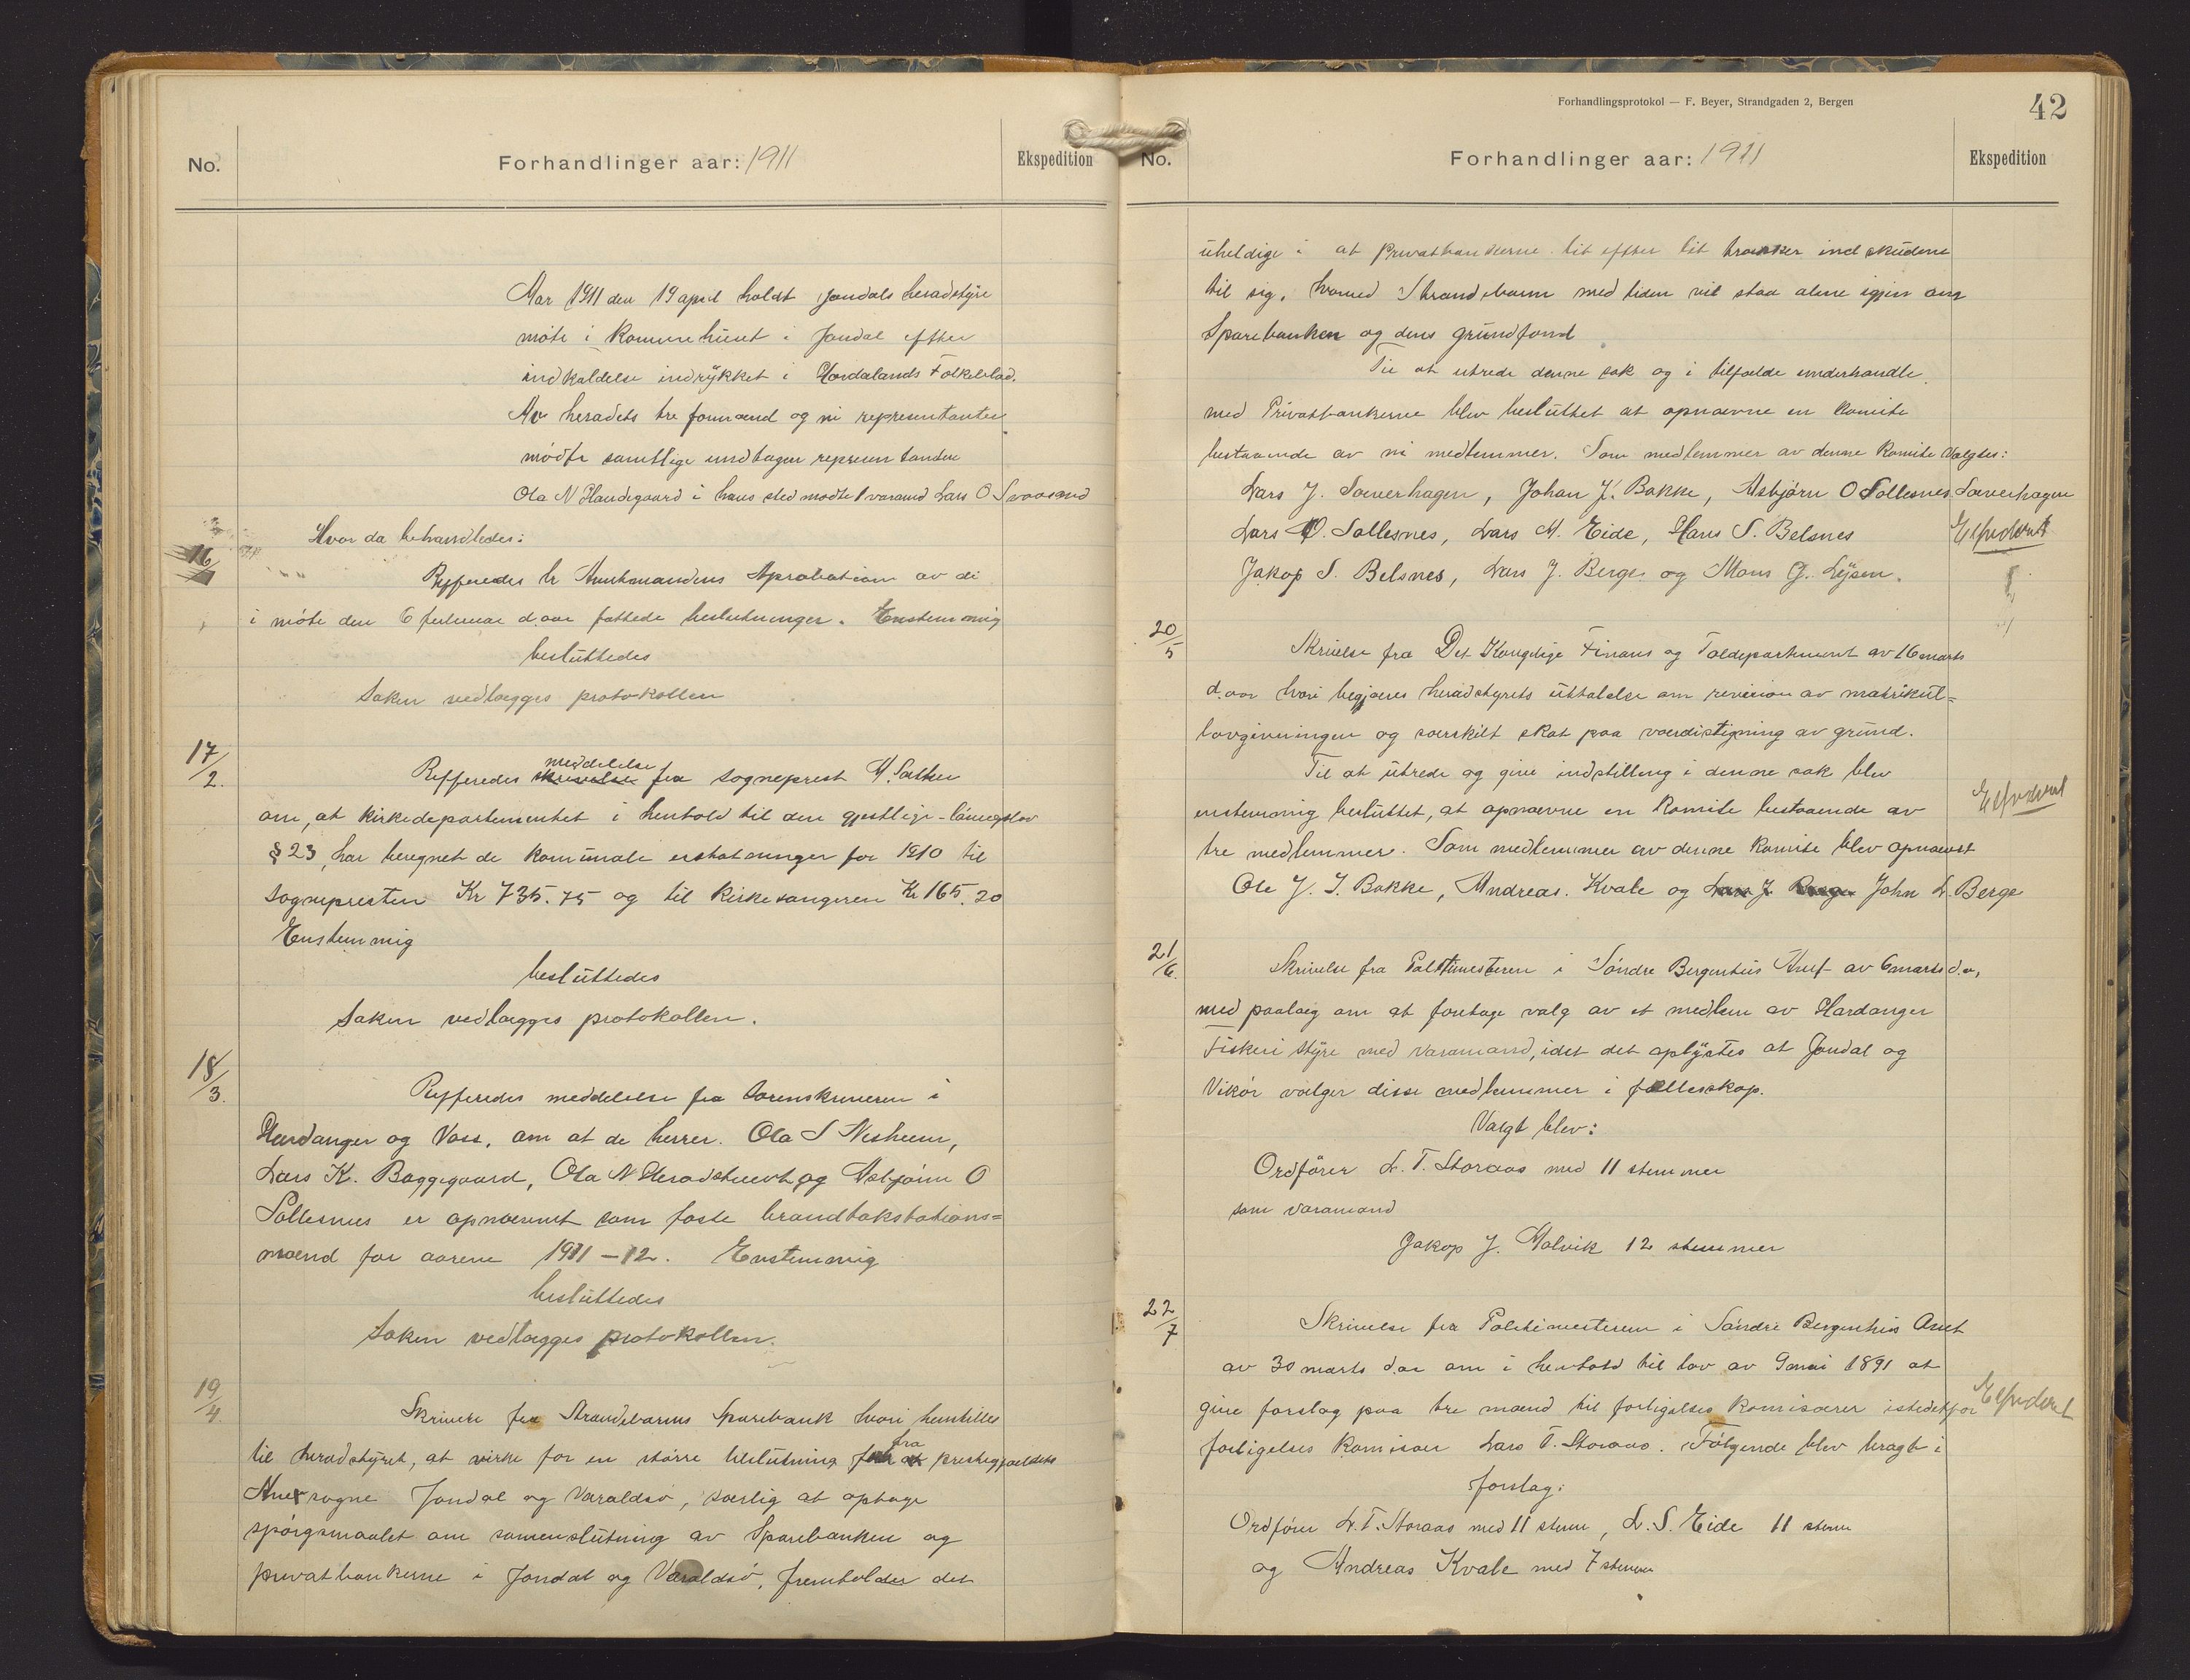 No.
Forhandlinger aar: 1911
Ekspedition
Aar 1911 den 19 april holdt Jondals heradstyre
møte i Komunehuset i Jondal efter
indkaldelse indrykket i Hordalands Folkeblad.
Av heradets tre formænd og ni representanter
mødte samtlige undtagen representanten
Ola N Handegaard i hans sted mødte 1 varamd Lars O Svaasand
Hvor da behandledes:
16/1
Refferedes hr Amtmandens Aprobation av de
i møte den 6 februar d.aar fattede beslutninger. Enstemmig
besluttedes
Saken vedlægges protokollen
17/2.
Refferedes skrivelse meddelelse fra sogneprest A. Sather
om, at kirkedepartementet i henhold til den gjestlige-løningslov
§ 23, har beregnet de komunale erstatninger for 1910 til
sognepresten Kr 735.75 og til kirkesangeren Kr 165.20
Enstemmig
besluttedes
Saken vedlægges protokollen.
18/3.
Refferedes meddelelse fra Sorenskriveren i
Hardanger og Voss, om at de herrer. Ola S Nesheim,
Lars K. Baggegaard, Ola N Heradstveit og Asbjørn O
Sollesnes er opnævnet som faste brandtakstations=
mænd for aarene 1911-12. Enstemmig
besluttedes
Saken vedlægges protokollen.
19/4.
Skrivelse fra Strandebarms Sparebank hvori henstilles
til heradstyret, at virke for en større tilslutning fra prestegjældets
Anexsogne Jondal og Varaldsø, særlig at optage
spørgsmaalet om samenslutning av Sparebanken og
privatbankerne i Jondal og Varaldsø, fremholder det
Forhandlingsprotokol — F. Beyer, Strandgaden 2, Bergen
42
No.
Forhandlinger aar: 1911
Ekspedition
uheldige i at Privatbankerne lit efter lit trækker indskudene
til sig, hvorved Strandebarm med tiden vil staa alene igjen om
Sparebanken og dens grundfond
Til at utrede denne sak og i tilfælde underhandle
med Privatbankerne blev besluttet at opnævne en Komite
bestaaende av ni medlemmer. Som medlemmer av denne Komite valgtes:
Lars J. Sæverhagen, Johan J. Bakke, Asbjørn O Sollesnes Sæverhagen
Lars O. Sollesnes, Lars A. Eide, Hans S. Belsnes
Elfvedert
Jakop S. Belsnes, Lars J. Berge og Mons G. Lysen.
20/5
Skrivelse fra Det Kongelige Finans og Toldepartement av 16 marts
d.aar hvori begjæres heradstyrets uttalelse om revision av matrikul=
lovgivningen og særskilt skat paa værdistigning av grund.
Til at utrede og give indstilling i denne sak blev
enstemmig besluttet, at opnævne en Komite bestaaende av
tre medlemmer. Som medlemmer av denne Komite blev opnævnt
Ole J. I. Bakke, Andreas. Kvale og Lars J. Berge John L. Berge
21/6.
Skrivelse fra Politimesteren i Søndre Bergenhus Amt av 6 marts d.a,
med paalæg om at foretage valg av et medlem av Hardanger
Fiskeri styre med varamand, idet det oplystes at Jondal og
Vikør vælger disse medlemmer i fællesskap.
Valgt blev:
Ordfører L. T. Storaas med 11 stemmer
som varamand
Jakop J. Aalvik 12 stemmer
22/7
Skrivelse fra Politimesteren i Søndre Bergenhus Amt
av 30 marts d.aa om i henhold til lov av 9 mai 1891 at
give forslag paa tre mænd til forligelses Komisærer istedetfor
forligelses Komisær Lars T. Storaas. Følgende blev bragt i
forslag:
Ordfører L. T. Storaas med 11 stem, L. S. Eide 11 stem
og Andreas Kvale med 7 stemmer